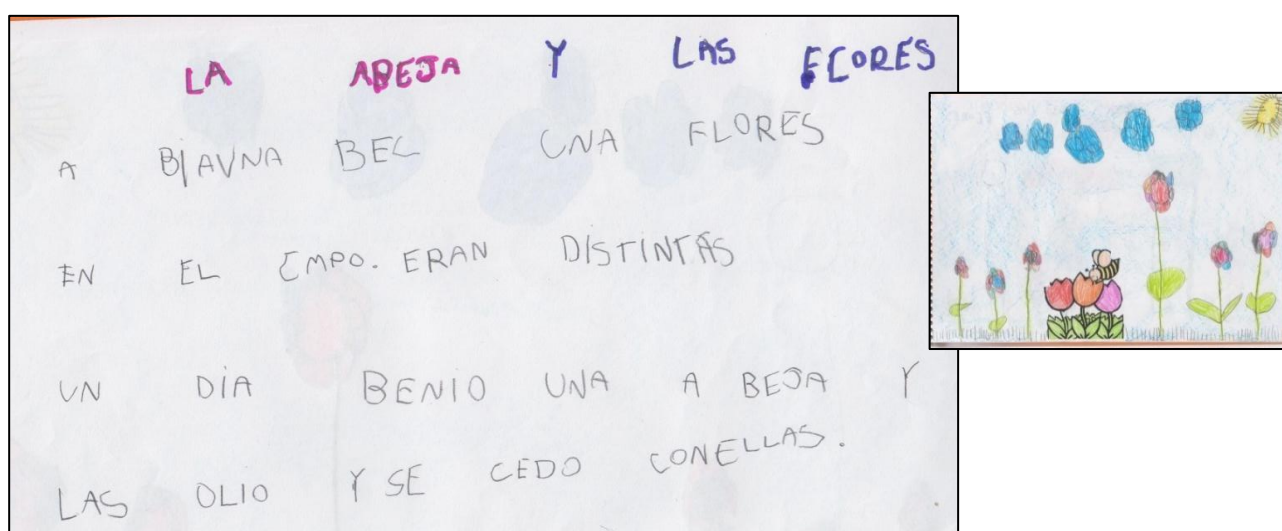 LA ABEJA Y LAS FLORES
A BIAVNA BEL UNA FLORES
EN EL EMPO. ERAN DISTINTAS
UN DÍA BENIO UNA A BEJA Y
LAS OLIO Y SE CEDO CONELLAS.